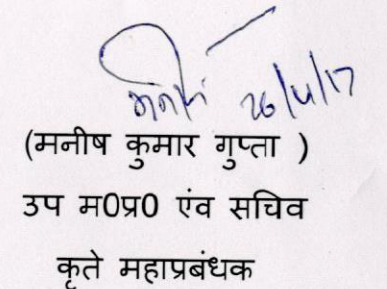 26/4/17
(मनीष कुमार गुप्ता )
उप म0प्र0 एंव सचिव
कृते महाप्रबंधक